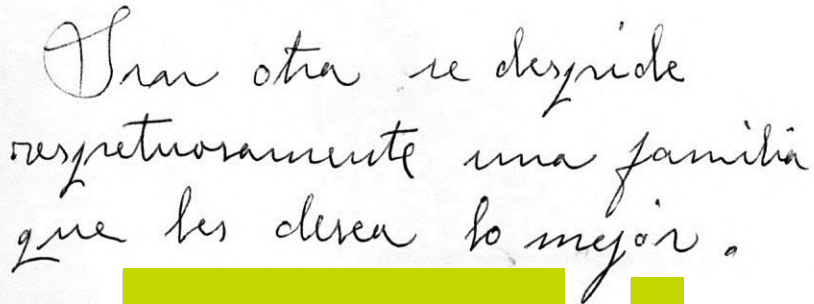 Sin otra se despide
respetuosamente una familia
que les desea lo mejor.